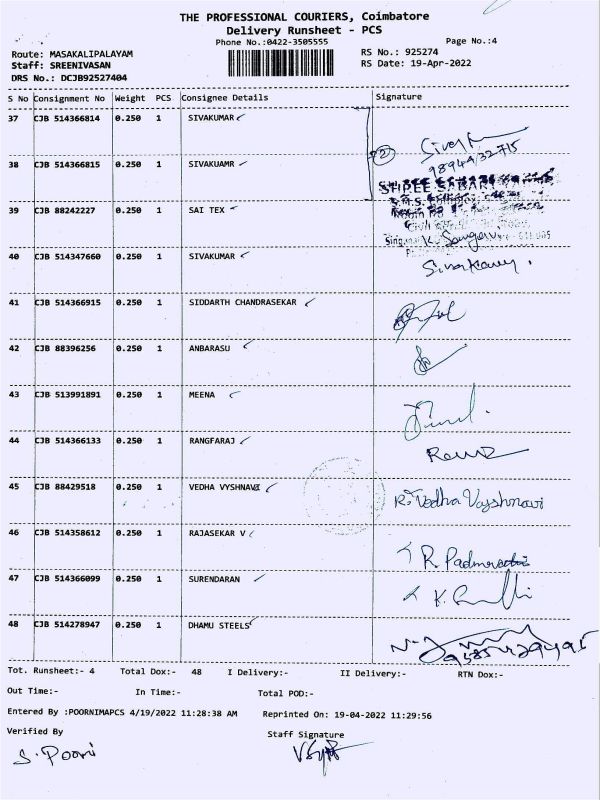 THE PROFESSIONAL COURIERS, Coimbatore
Delivery Runsheet - PCS
Phone No.:0422-3505555
Page No.:4
Route: MASAKALIPALAYAM
RS No.: 925274
Staff: SREENIVASAN
RS Date: 19-Apr-2022
DRS No.: DCJB92527404
S No Consignment No Weight PCS Consignee Details Signature
37 CJB 514366814 0.250 1 SIVAKUMAR
38 CJB 514366815 0.250 1 SIVAKUAMR
39 CJB 88242227 0.250 1 SAI TEX
40 CJB 514347660 0.250 1 SIVAKUMAR
41 CJB 514366915 0.250 1 SIDDARTH CHANDRASEKAR
42 CJB 88396256 0.250 1 ANBARASU
43 CJB 513991891 0.250 1 MEENA
44 CJB 514366133 0.250 1 RANGFARAJ
45 CJB 88429518 0.250 1 VEDHA VYSHNAVI R. Vedha Vayshnavi
46 CJB 514358612 0.250 1 RAJASEKAR V R.
47 CJB 514366099 0.250 1 SURENDARAN K.
48 CJB 514278947 0.250 1 DHAMU STEELS
Tot. Runsheet:- 4 Total Dox:- 48 I Delivery:- II Delivery:- RTN Dox:-
Out Time:- In Time:- Total POD:-
Entered By :POORNIMAPCS 4/19/2022 11:28:38 AM Reprinted On: 19-04-2022 11:29:56
Verified By Staff Signature
S. Poorni